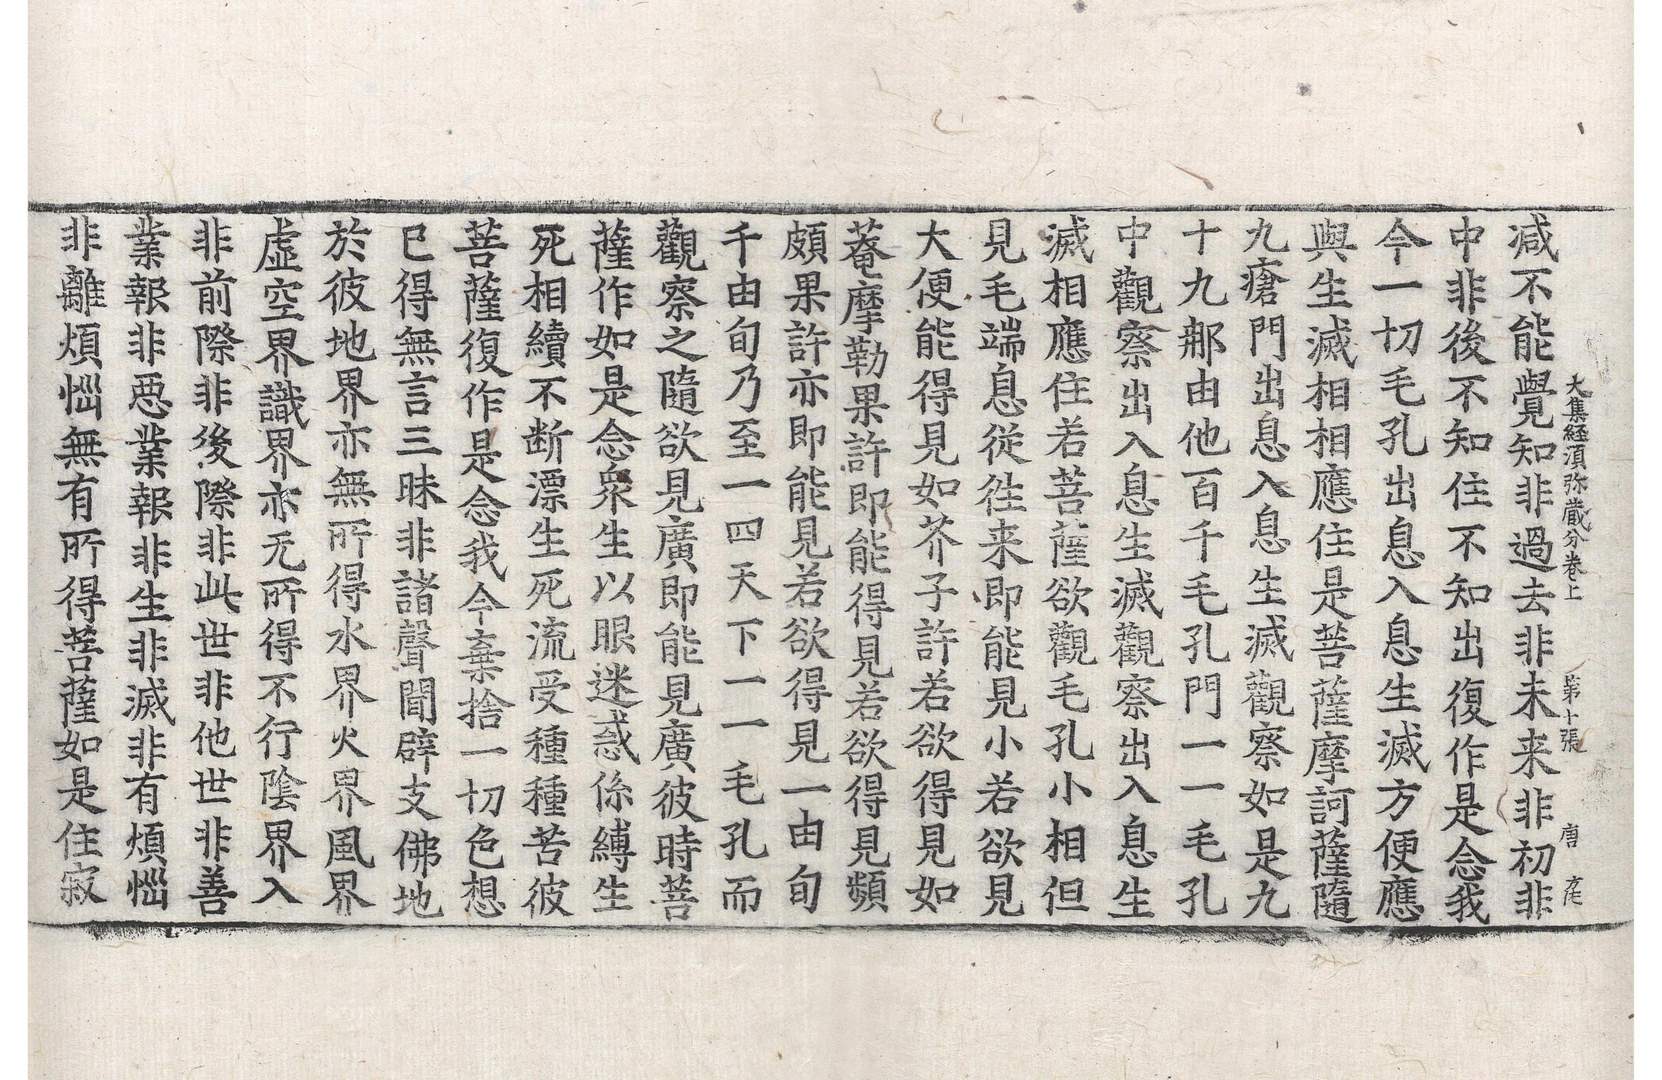 大集経湏弥蔵分卷上 第十張 唐 虎
減不能覺知非過去非未来非初非
中非後不知住不知出復作是念我
今一切毛孔出息入息生滅方便應
與生滅相相應住是菩薩摩訶薩隨
九瘡門出息入息生滅觀察如是九
十九郍由他百千毛孔門一一毛孔
中觀察出入息生滅觀察出入息生
滅相應住若菩薩欲觀毛孔小相但
見毛端息從徃来即能見小若欲見
大便能得見如芥子許若欲得見如
菴摩勒果許即能得見若欲得見頻
頗果許亦即能見若欲得見一由旬
千由旬乃至一四天下一一毛孔而
觀察之隨欲見廣即能見廣彼時菩
薩作如是念衆生以眼迷惑係縛生
死相續不断漂生死流受種種苦彼
菩薩復作是念我今棄捨一切色想
已得無言三昧非諸聲聞辟支佛地
於彼地界亦無所得水界火界風界
虛空界識界亦无所得不行陰界入
非前際非後際非此世非他世非善
業報非惡業報非生非滅非有煩惱
非離煩惱無有所得菩薩如是住寂